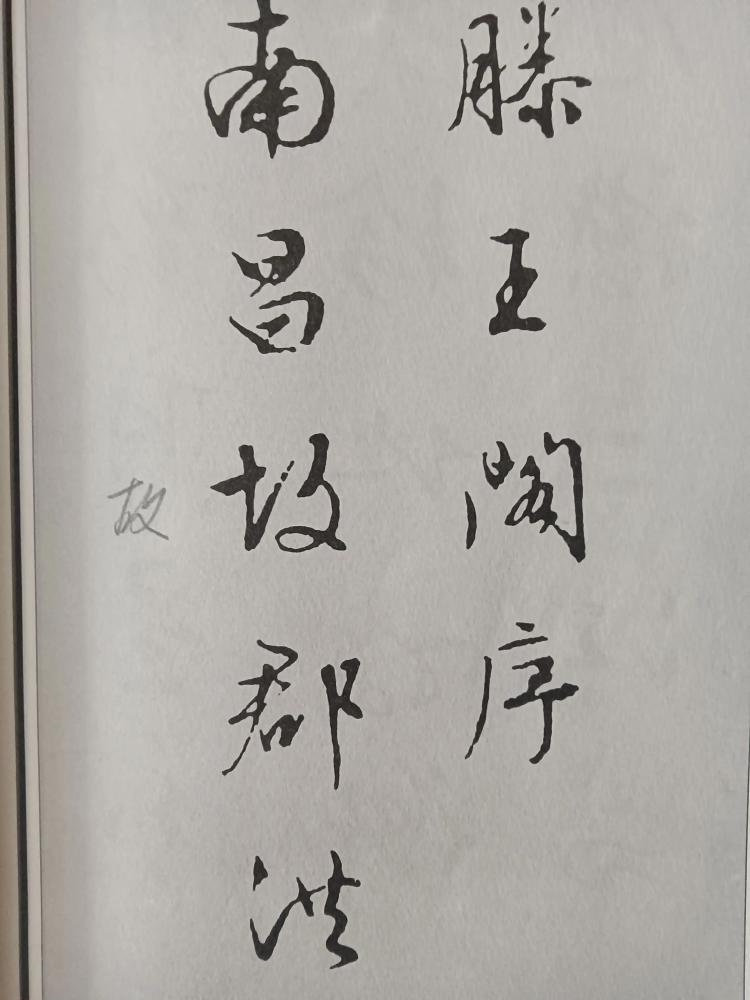 滕王阁序
南昌故郡洪
故